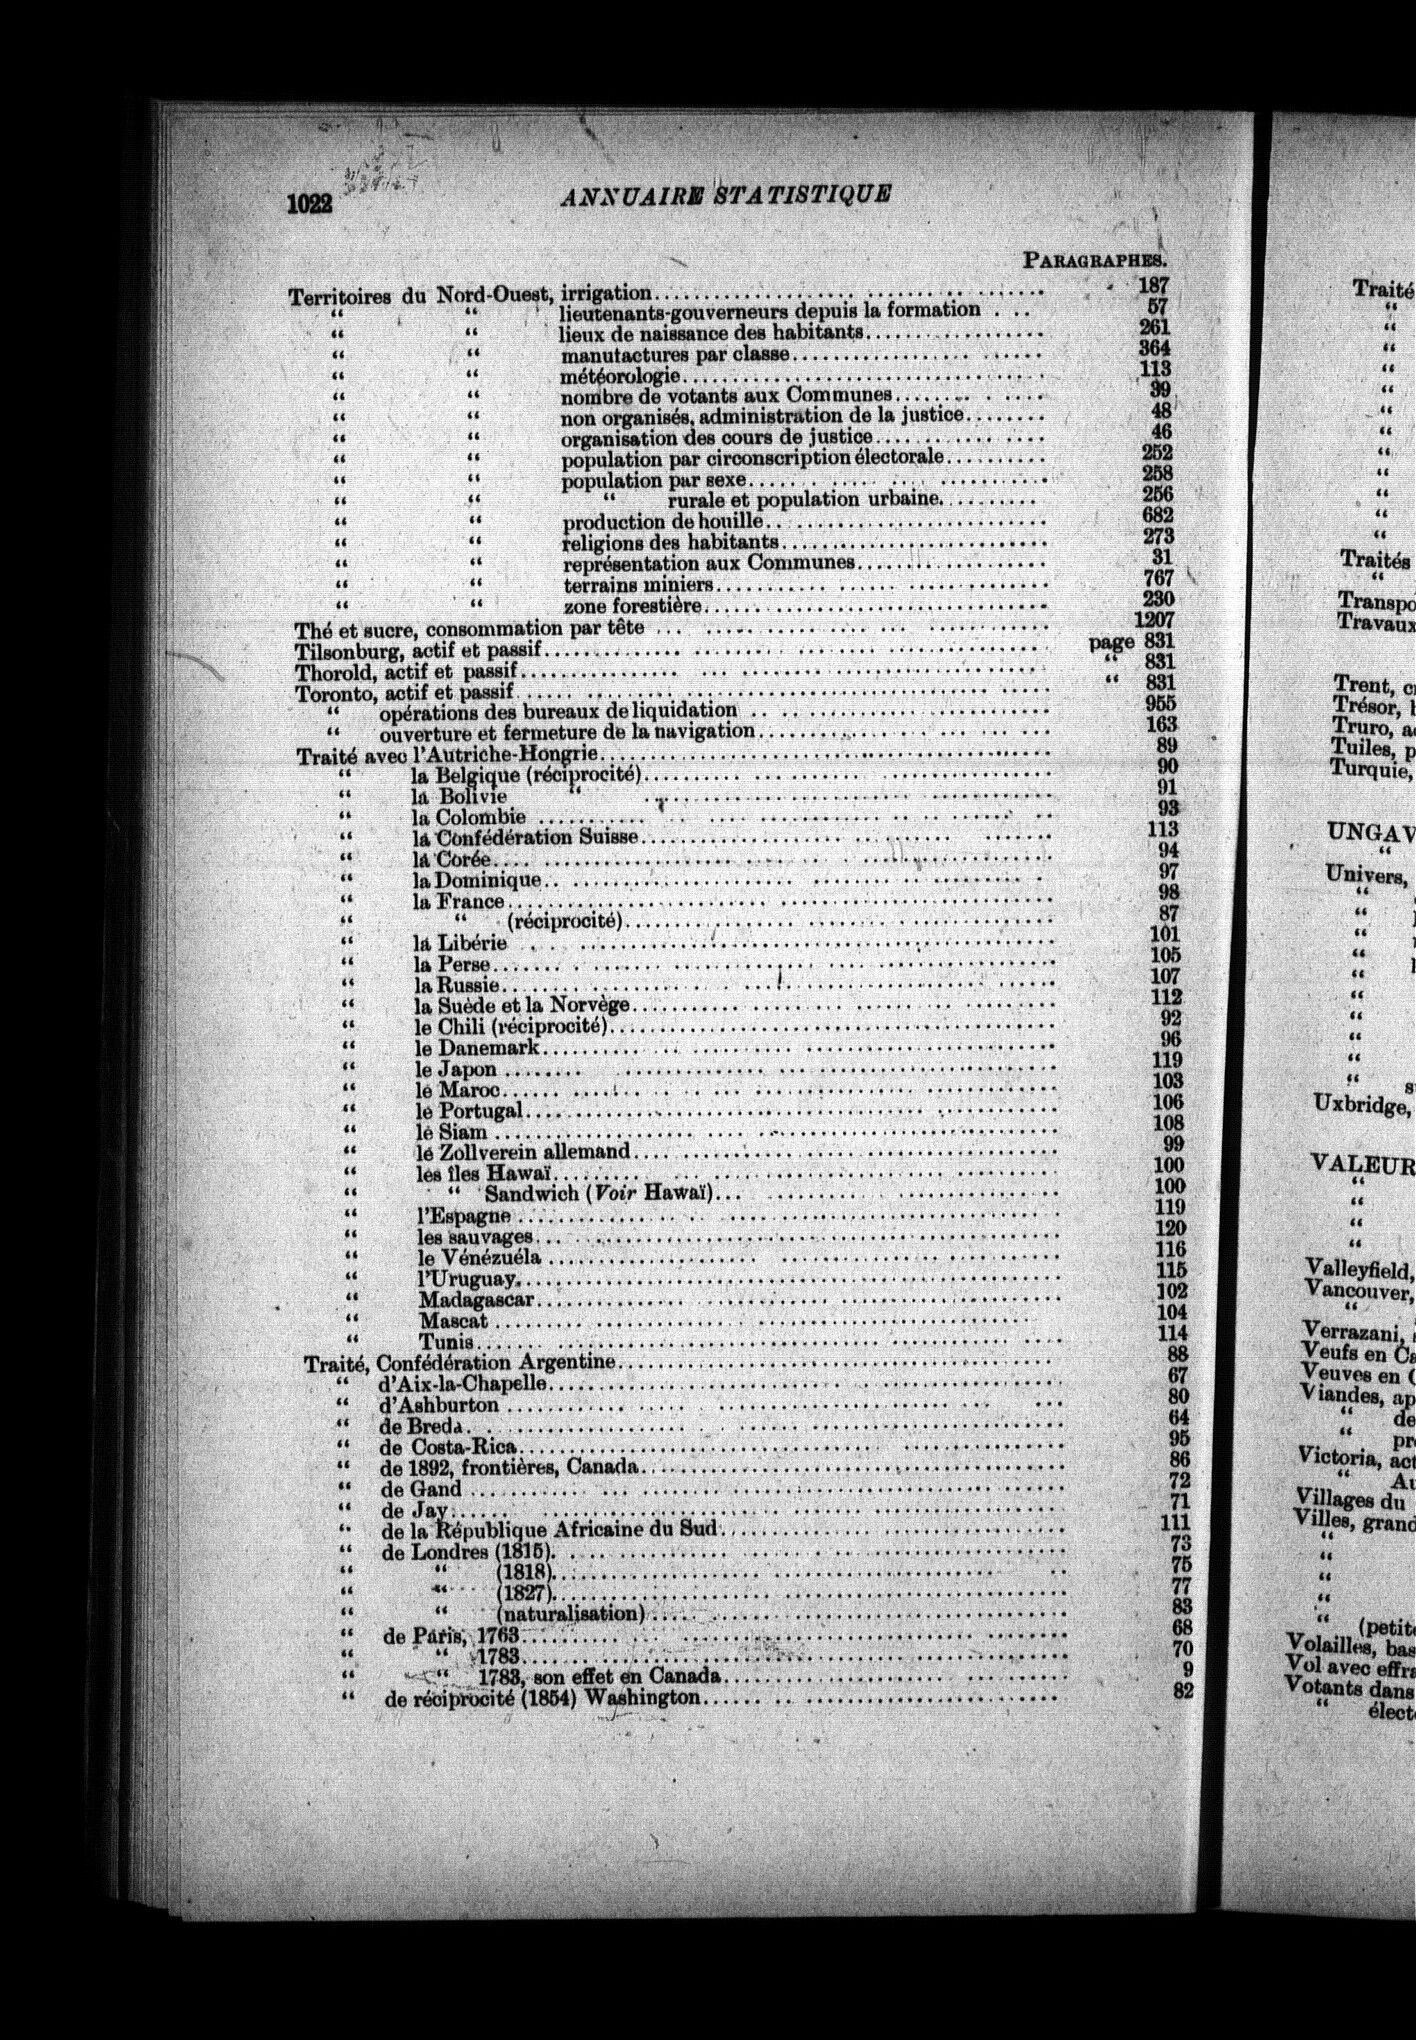 1022 ANNUAIRE STATISTIQUE
PARAGRAPHES.
Territoires du Nord-Ouest, irrigation.................... 187
“ “ lieutenants-gouverneurs depuis la formation . .. 57
“ “ lieux de naissance des habitants.................. 261
“ “ manufactures par classe.................... 364
“ “ météorologie.................... 113
“ “ nombre de votants aux Communes............ 39
“ “ non organisés, administration de la justice........ 48
“ “ organisation des cours de justice............ 46
“ “ population par circonscription électorale.......... 252
“ “ population par sexe.................... 258
“ “ “ rurale et population urbaine.......... 256
“ “ production de houille.................... 682
“ “ religions des habitants.................... 273
“ “ représentation aux Communes................ 31
“ “ terrains miniers.................... 767
“ “ zone forestière.................... 230
Thé et sucre, consommation par tête .................... 1207
Tilsonburg, actif et passif.................... page 831
Thorold, actif et passif.................... “ 831
Toronto, actif et passif.................... “ 831
“ opérations des bureaux de liquidation .................... 955
“ ouverture et fermeture de la navigation.................... 163
Traité avec l'Autriche-Hongrie.................... 89
“ la Belgique (réciprocité).................... 90
“ la Bolivie “ .................... 91
“ la Colombie .................... 93
“ la Confédération Suisse.................... 113
“ la Corée.................... 94
“ la Dominique.................... 97
“ la France.................... 98
“ “ (réciprocité).................... 87
“ la Libérie .................... 101
“ la Perse.................... 105
“ la Russie.................... 107
“ la Suède et la Norvège.................... 112
“ le Chili (réciprocité).................... 92
“ le Danemark.................... 96
“ le Japon .................... 119
“ le Maroc.................... 103
“ le Portugal.................... 106
“ le Siam .................... 108
“ le Zollverein allemand.................... 99
“ les îles Hawaï.................... 100
“ “ Sandwich (Voir Hawaï).................... 100
“ l'Espagne .................... 119
“ les sauvages.................... 120
“ le Vénézuéla .................... 116
“ l'Uruguay.................... 115
“ Madagascar.................... 102
“ Mascat .................... 104
“ Tunis.................... 114
Traité, Confédération Argentine.................... 88
“ d'Aix-la-Chapelle.................... 67
“ d'Ashburton .................... 80
“ de Breda.................... 64
“ de Costa-Rica.................... 95
“ de 1892, frontières, Canada.................... 86
“ de Gand .................... 72
“ de Jay.................... 71
“ de la République Africaine du Sud.................... 111
“ de Londres (1815).................... 73
“ “ (1818).................... 75
“ “ (1827).................... 77
“ “ (naturalisation).................... 83
“ de Paris, 1763.................... 68
“ “ 1783.................... 70
“ “ 1783, son effet en Canada.................... 9
“ de réciprocité (1854) Washington.................... 82
Traité
“
“
“
“
“
“
“
“
“
“
“
“
Traités
“
Transpo
Travaux
Trent, c
Trésor,
Truro, a
Tuiles, p
Turquie,
UNGAV
“
Univers,
“
“
“
“
“
“
“
“
“
“
Uxbridge,
VALEUR
“
“
“
“
Valleyfield,
Vancouver,
“
Verrazani,
Veufs en Ca
Veuves en C
Viandes, ap
“ de
“ pr
Victoria, act
“ Au
Villages du
Villes, grand
“
“
“
“
“ (petite
Volailles, bas
Vol avec effra
Votants dans
“ élect